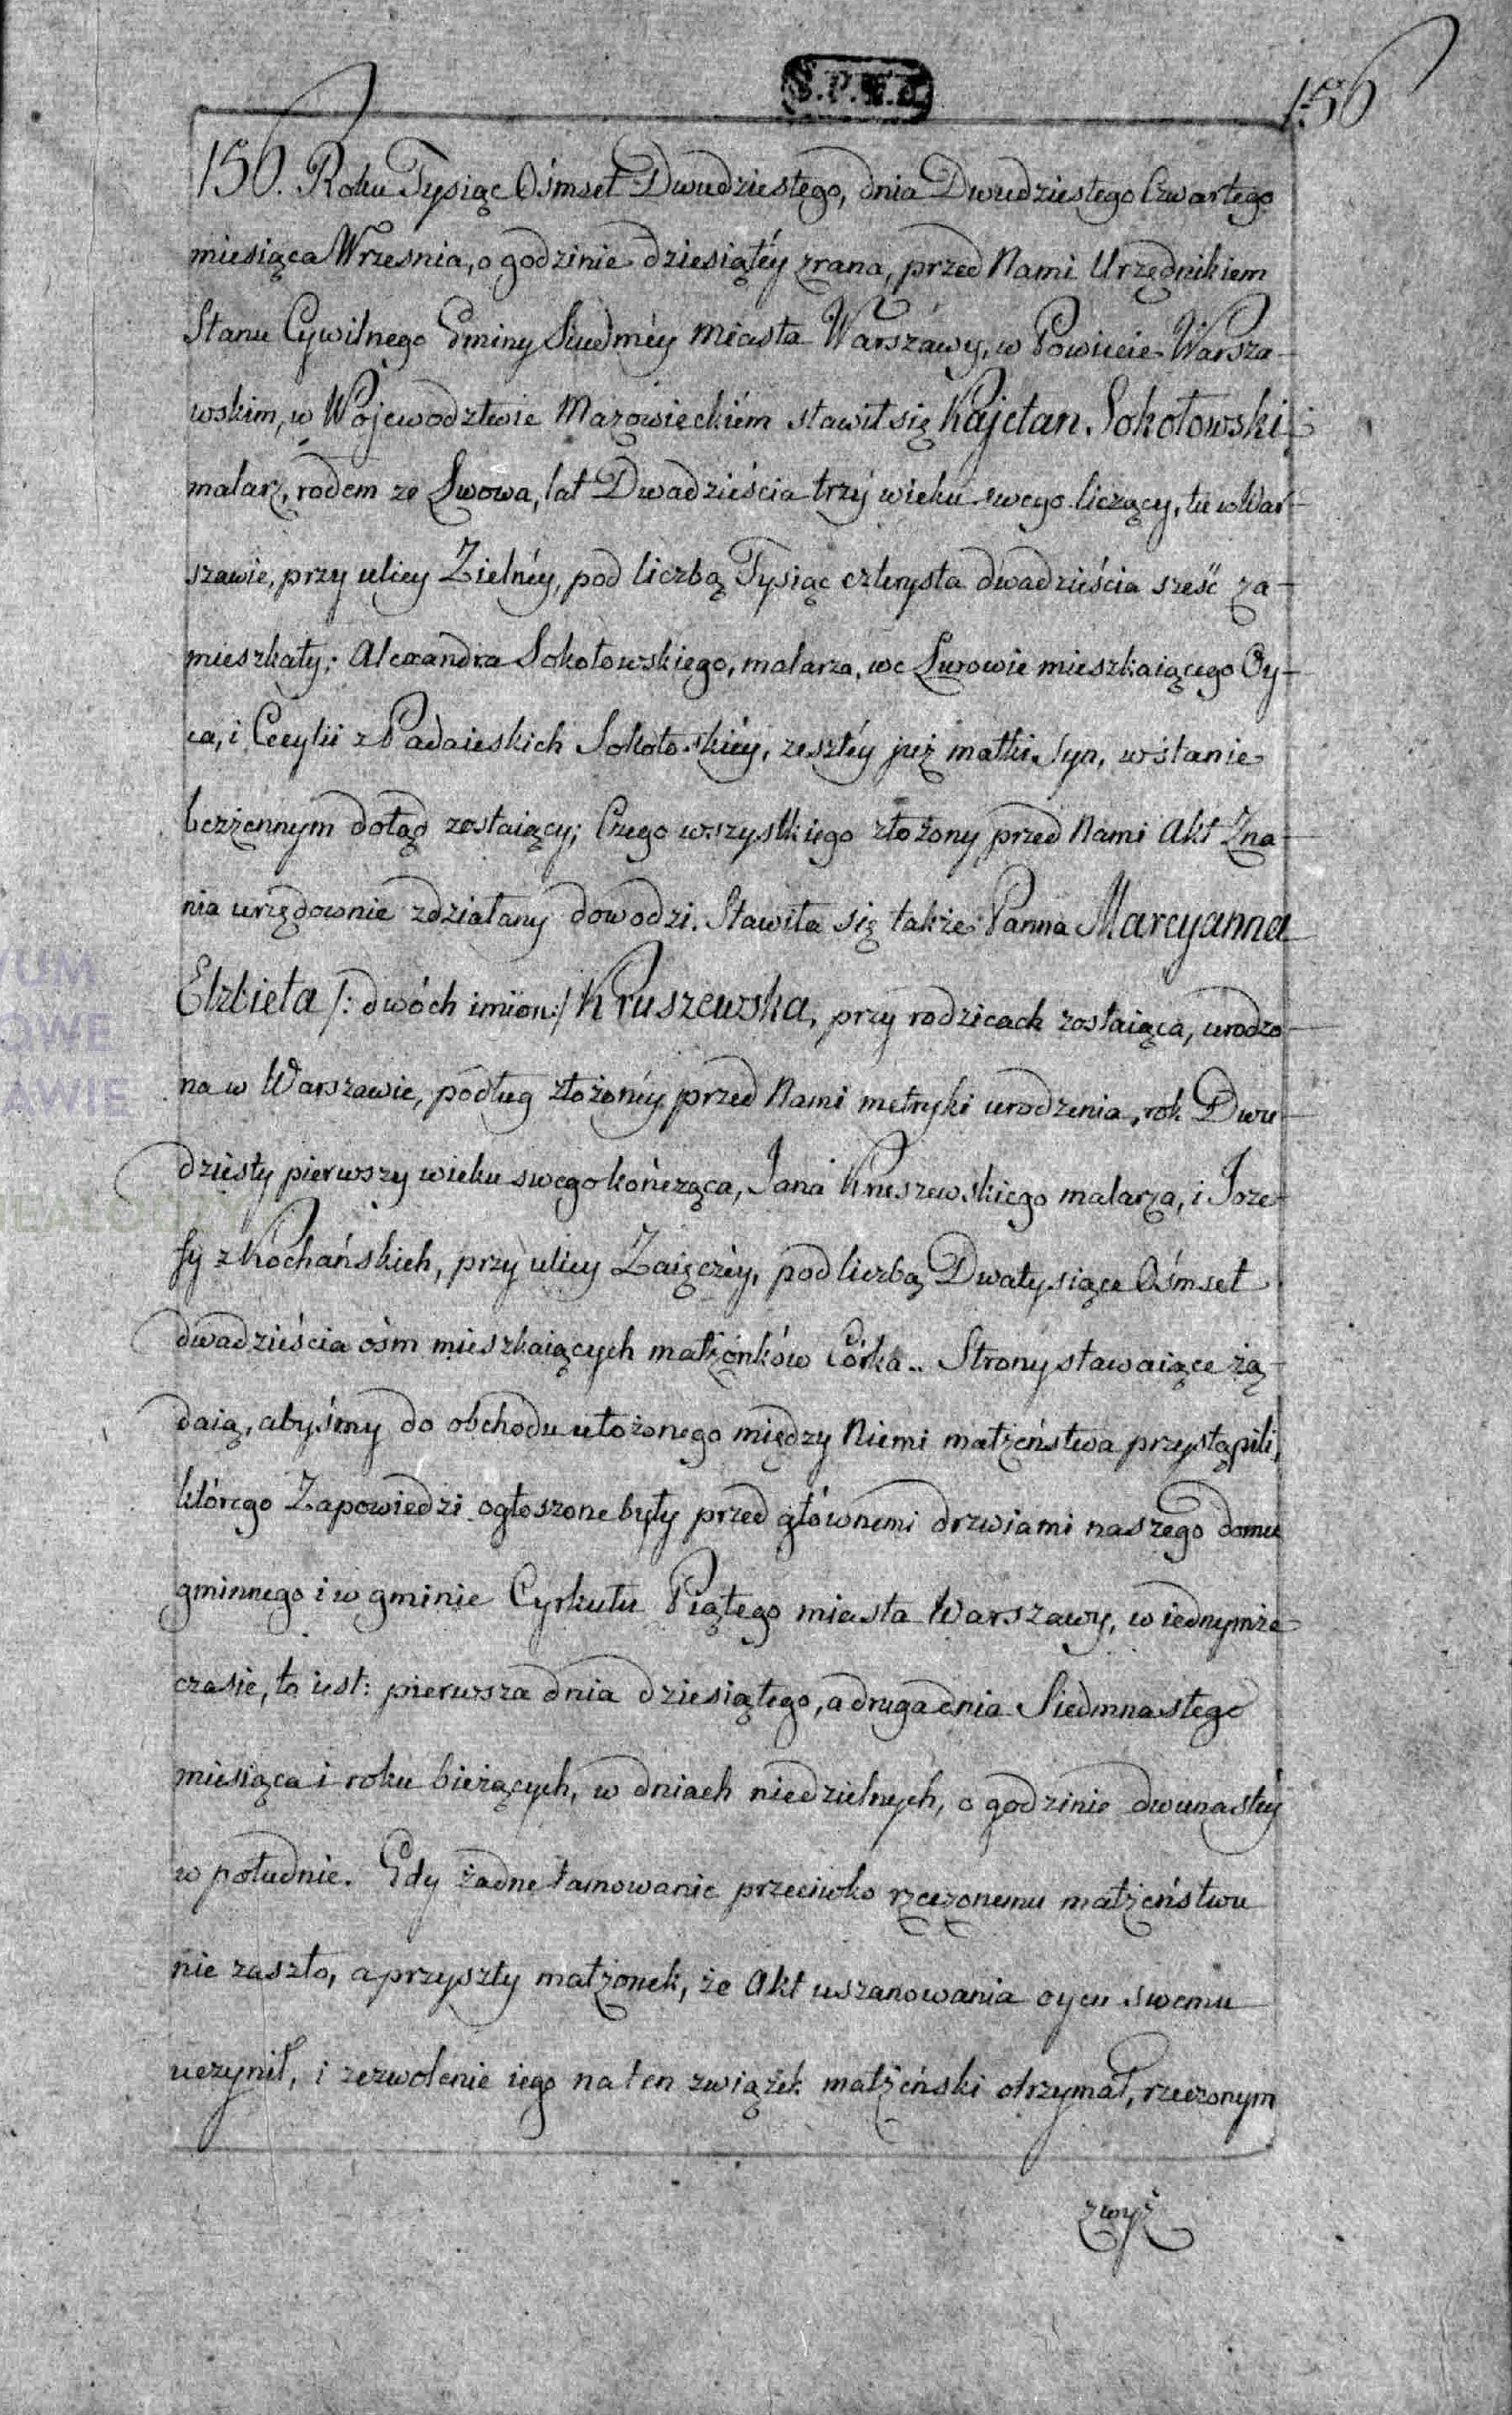 S.P.K.J.
156
156. Roku Tysiąc Ośmset Dwudziestego, dnia Dwudziestego Czwartego
miesiąca Wrzesnia, o godzinie dziesiątéy zrana, przed Nami Urzędnikiem
Stanu Cywilnego Gminy Siudméy Miasta Warszawy, w Powiecie Warsza-
wskim, w Wojewodztwie Mazowieckiém stawił się Kajetan Sokołowski
malarz, rodem ze Lwowa, lat Dwadzieścia trzy wieku swego liczący, tu w War-
szawie, przy ulicy Zielnéy, pod liczbą Tysiąc czterysta dwadzieścia sześć za-
mieszkały; Alexandra Sokołowskiego, malarza, we Lwowie mieszkaiącego Oy-
ca, i Cecylii z Padaieskich Sokoło.skiéy, zeszłéy już matki Syn, w stanie
bezżennym dotąd zostaiący; Czego wszystkiego złożony przed Nami Akt Zna-
nia urzędownie zdziałany dowodzi. Stawiła się także Panna Marcyanna
Elzbieta /: dwóch imion :/ Kruszewska, przy rodzicach zostaiąca, urodzo-
na w Warszawie, podług złożonéy przed Nami metryki urodzenia, rok Dwu-
dziesty pierwszy wieku swego kończąca, Jana Kruszewskiego malarza, i Joze-
fy z Kochańskich, przy ulicy Zaięczéy, pod liczbą Dwatysiące Ośmset
dwadzieścia ośm mieszkaiących małżonków Córka.. Strony stawaiące żą-
daią, abyśmy do obchodu ułożonego między Niemi małżeństwa przystąpili,
którego Zapowiedzi ogłoszone były przed głównemi drzwiami naszego domu
gminnego i w gminie Cyrkułu Piątego miasta Warszawy, w iednymże
czasie, to iest: pierwsza dnia dziesiątego, a druga dnia Siedmnastego
miesiąca i roku bieżących, w dniach niedzielnych, o godzinie dwunastéy
w południe. Gdy żadne tamowanie przeciwko rzeczonemu małżeństwu
nie zaszło, a przyszły małżonek, że Akt uszanowania oycu swemu
uczynił, i zezwolenie iego na ten związek małżeński otrzymał, rzeczonym
zwyż